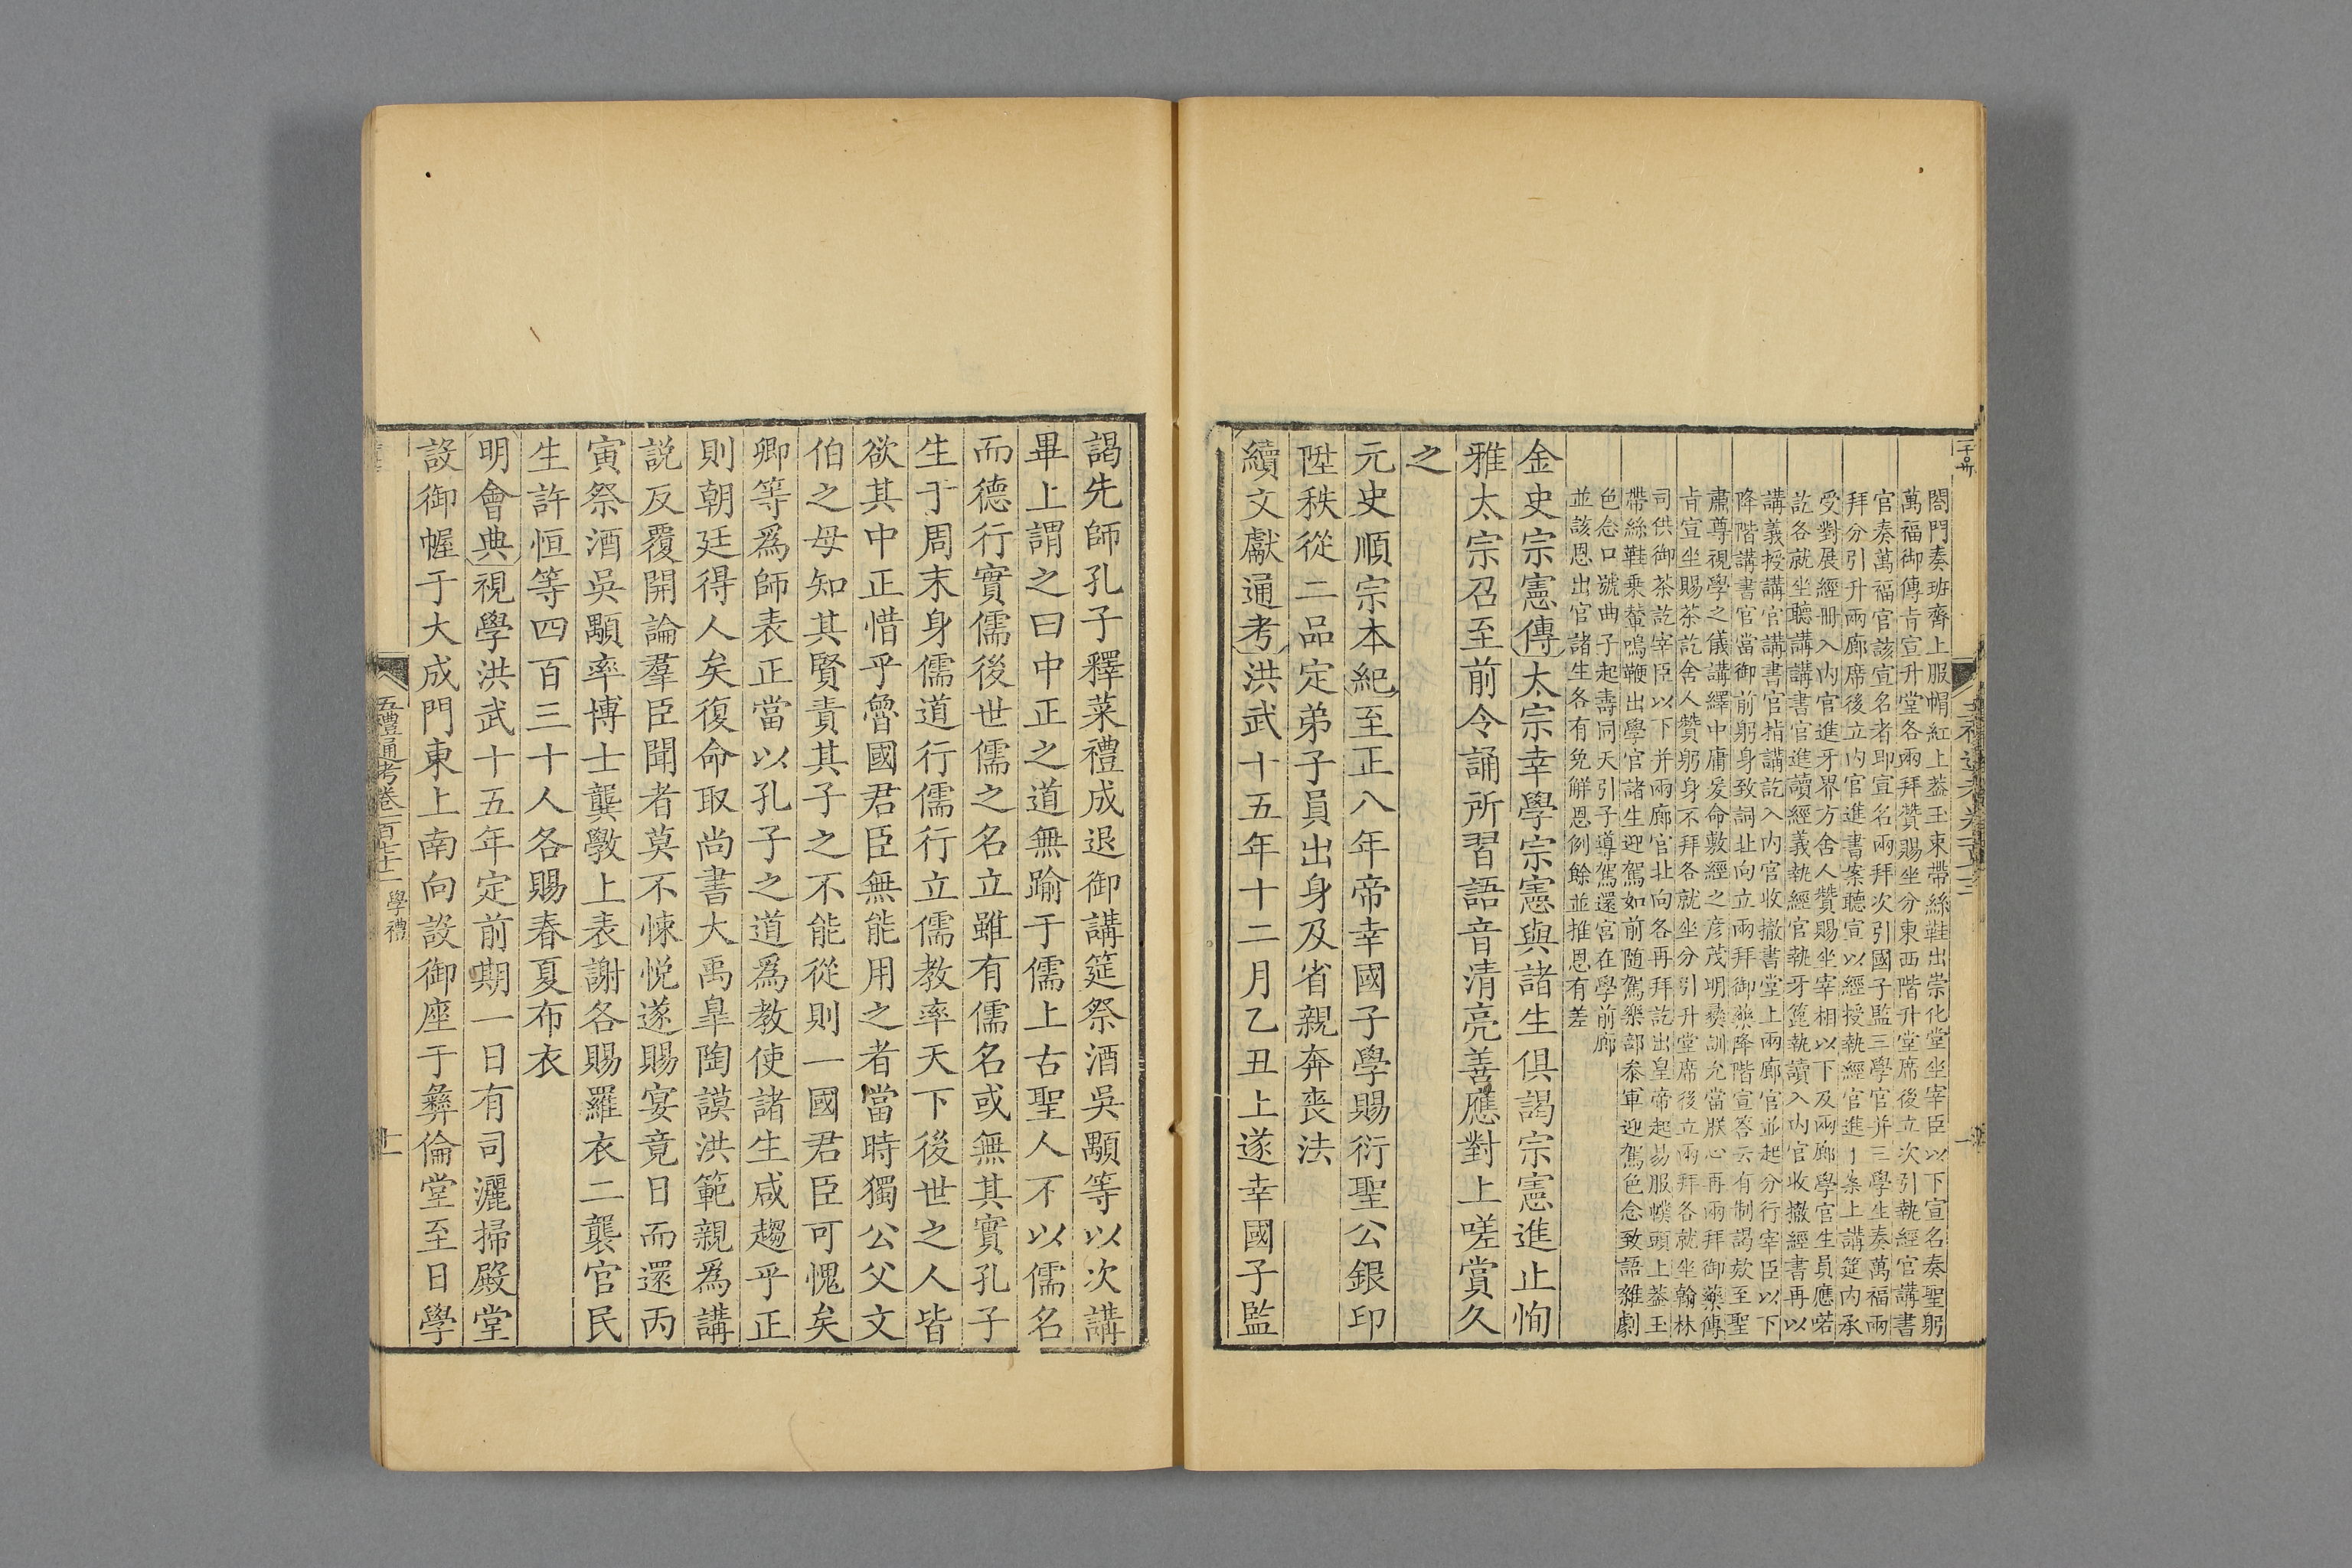 閤門奏班齊上服帽紅上葢玉束帶絲鞋出崇化堂坐宰臣以下宣名奏聖躬
萬福御傳㫖宣升堂各兩拜贊賜坐分東西階升堂席後立次引執經官講書
官奏萬福官該宣名者即宣名兩拜次引國子監三學官并三學生奏萬福兩
拜分引升兩廊席後立内官進書案聽宣以經授執經官進于案上講筵内承
受對展經冊入内官進牙界方舍人贊賜坐宰相以下及兩廊學官生員應喏
訖各就坐聽講講書官進讀經義執經官執牙篦執讀入内官收撤經書再以
講義授講官講書官指講訖入内官收撤書堂上兩廊官並起分行宰臣以下
降階講書官當御前躬身致詞北向立兩拜御藥降階宣答云有制謁欵至聖
肅尊視學之儀講繹中庸爰命敷經之彦茂明彝訓允當朕心再兩拜御藥傳
㫖宣坐賜茶訖舍人贊躬身不拜各就坐分引升堂席後立兩拜各就坐翰林
司供御茶訖宰臣以下并兩廊官北向各再拜訖出皇帝起易服幞頭上葢玉
帶絲鞋乗輦鳴鞭出學官諸生迎駕如前随駕樂部叅軍迎駕色念致語雜劇
色念口號曲子起壽同天引子導駕還宮在學前廊
並該恩出官諸生各有免觧恩例餘並推恩有差
金史宗憲傳太宗幸學宗憲與諸生俱謁宗憲進止恂
雅太宗召至前令誦所習語音清亮善應對上嗟賞久
之
元史順宗本紀至正八年帝幸國子學賜衍聖公銀印
陞秩從二品定弟子員出身及省親奔喪法
續文獻通考洪武十五年十二月乙丑上遂幸國子監
謁先師孔子釋菜禮成退御講筵祭酒吳顒等以次講
畢上謂之曰中正之道無踰于儒上古聖人不以儒名
而德行實儒後世儒之名立雖有儒名或無其實孔子
生于周末身儒道行儒行立儒教率天下後世之人皆
欲其中正惜乎魯國君臣無能用之者當時獨公父文
伯之母知其賢責其子之不能從則一國君臣可愧矣
卿等爲師表正當以孔子之道爲教使諸生咸趨乎正
則朝廷得人矣復命取尚書大禹臯陶謨洪範親爲講
説反覆開論羣臣聞者莫不悚悦遂賜宴竟日而還丙
寅祭酒吳顒率博士龔斆上表謝各賜羅衣二襲官民
生許恒等四百三十人各賜春夏布衣
明會典視學洪武十五年定前期一日有司灑掃殿堂
設御幄于大成門東上南向設御座于彝倫堂至日學
五禮通考卷一百七十二 學禮